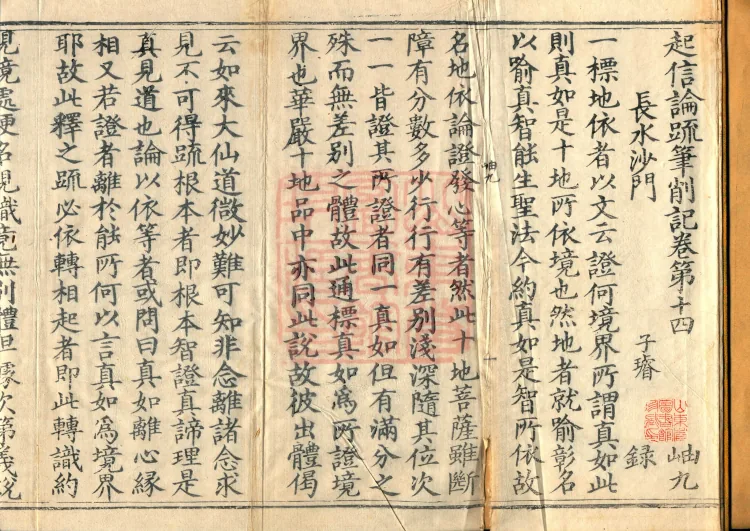 起信論疏筆削記卷第十四
岫九
長水沙門
子璿
錄
一標地依者以文云證何境界所謂真如此
則真如是十地所依境也然地者就喻彰名
以喻真智能生聖法今約真如是智所依故
岫九
一
名地依論證發心等者然此十地菩薩雖斷
障有分數多少行行有差別淺深隨其位次
一一皆證其所證者同一真如但有滿分之
殊而無差別之體故此通標真如為所證境
界也華嚴十地品中亦同此說故彼出體偈
云如來大仙道微妙難可知非念離諸念求
見不可得疏根本者即根本智證真諦理是
真見道也論以依等者或問曰真如離心緣
相又若證者離於能所何以言真如為境界
耶故此釋之疏必依轉相起者即此轉識約
見境處便名現識竟無別體但據次第義說